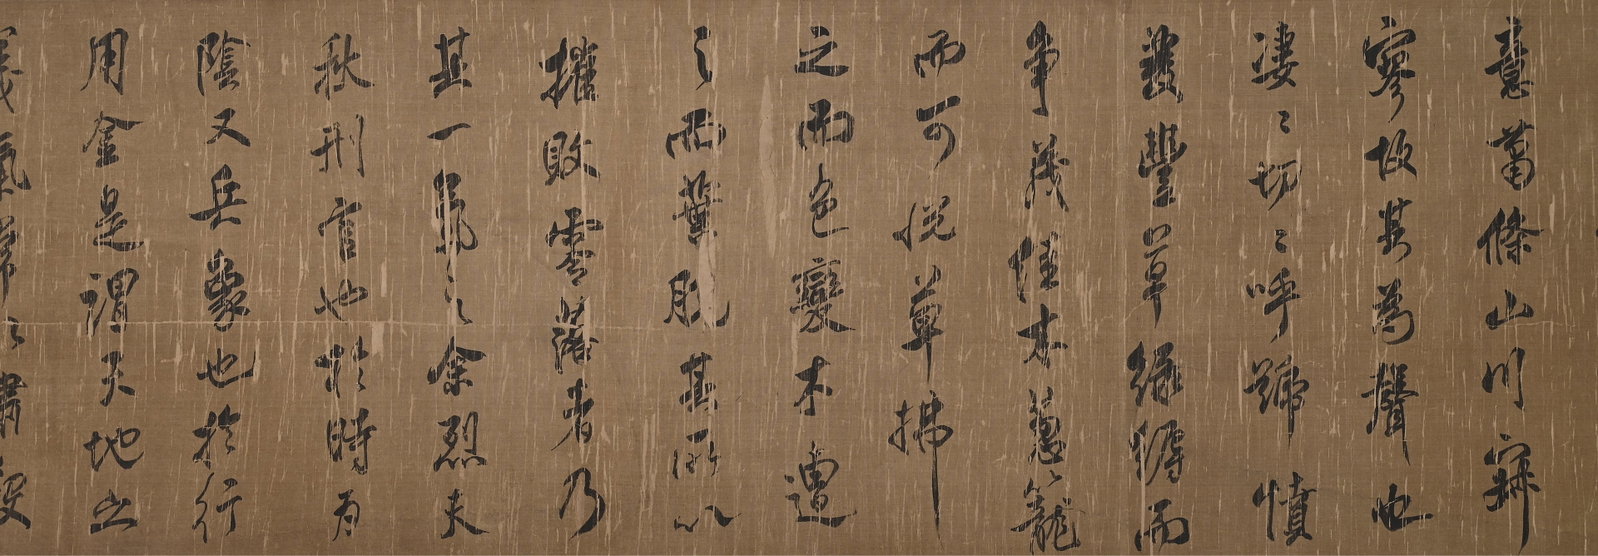 意蕭條山川寂
寥故其為聲也
凄々切々呼號憤
發豐草綠縟而
爭茂佳木蔥籠
而可悅草拂
之而色變木遭
之而葉脫其所以
摧敗零落者乃
其一氣之余烈夫
秋刑官也於時為
陰又兵象也於行
用金是謂天地之
義氣常以肅殺